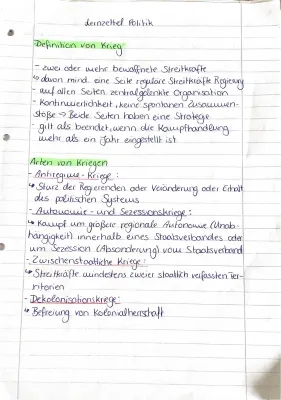 Lernzettel Politik
Definition von Krieg:
- zwei oder mehr bewaffnete Streitkräfte
↳ davon mind. eine Seite reguläre Streitkräfte Regierung
- auf allen Seiten zentralgelenkte Organisation
- Kontinuierlichkeit, keine spontanen Zusammen-
stöße → Beide Seiten haben eine Strategie
- gilt als beendet, wenn die Kampfhandlung
mehr als ein Jahr eingestellt ist
Arten von Kriegen
- Antiregime-Kriege:
↳ Sturz der Regierenden oder Veränderung oder Erhalt
des politischen Systems
- Autonomie- und Sezessionskriege:
↳ Kampf um größere regionale Autonomie (Unab-
hängigkeit) innerhalb eines Staatsverbandes oder
um Sezession (Absonderung) vom Staatsverband
- Zwischenstaatliche Kriege:
↳ Streitkräfte mindestens zweier staatlich verfassten Ter-
ritorien
- Dekolonisationskriege:
↳ Befreiung von Kolonialherrschaft